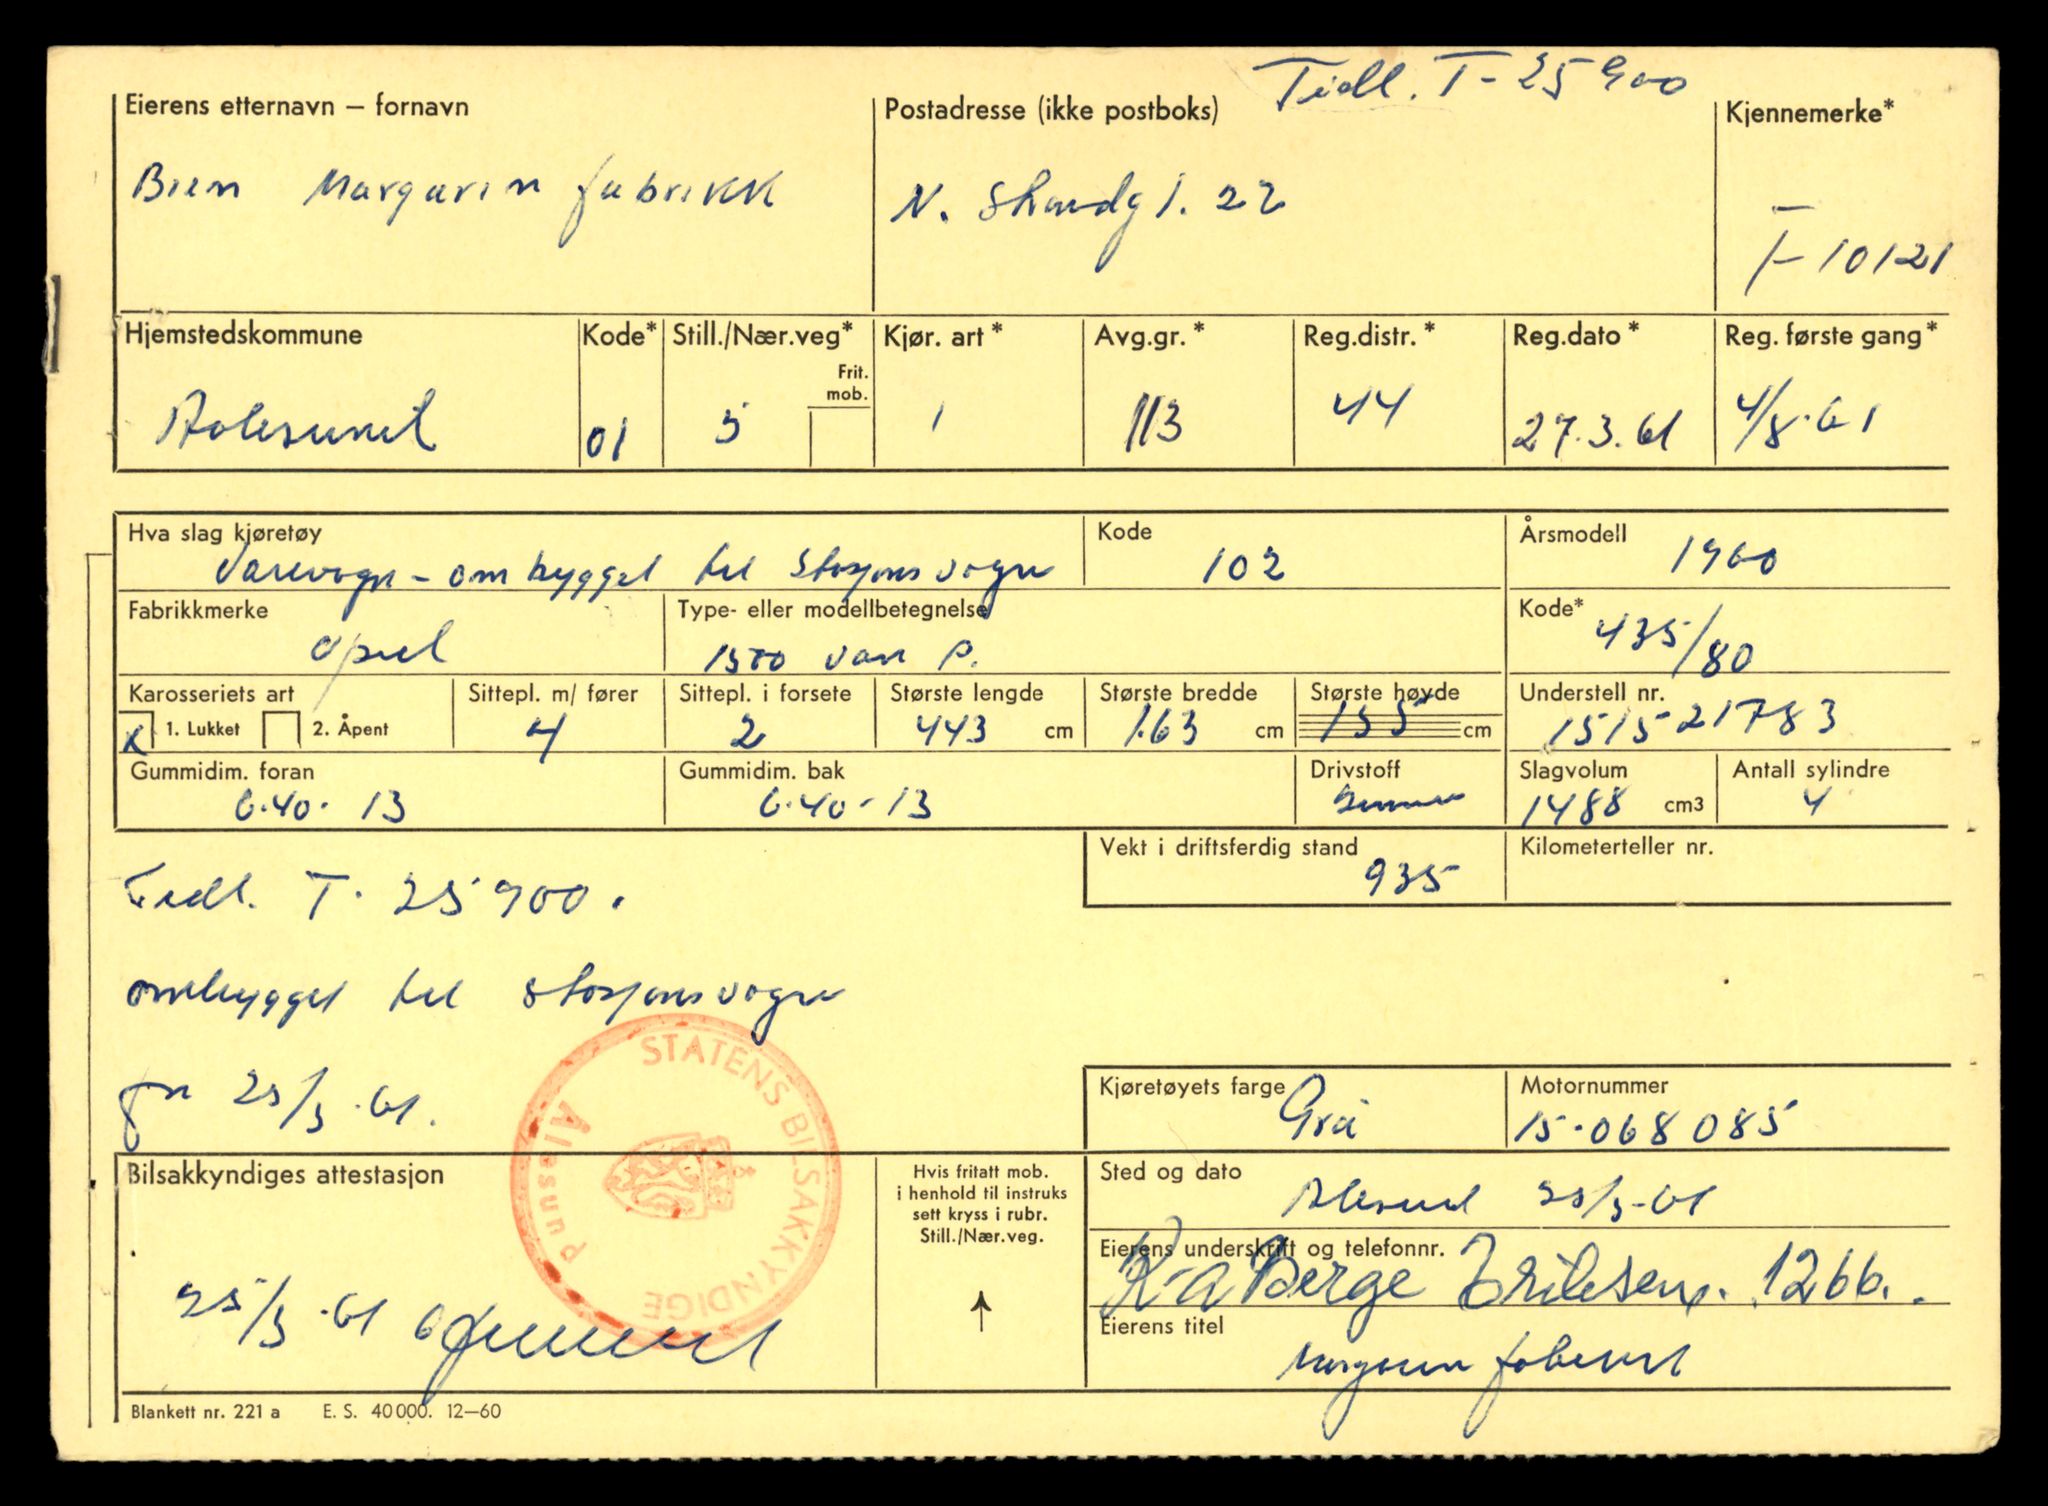 Tidl. T-25900
Eierens etternavn – fornavn Postadresse (ikke postboks) Kjennemerke*
Bien Margarin fabrikk N. Strandgt. 22
T-10121
Hjemstedskommune Kode* Still./Nær.veg* Kjør. art* Avg.gr.* Reg.distr.* Reg.dato* Reg. første gang*
Frit. mob.
Aalesund 01 5 1 113 44 27.3.61 4/8.61
Hva slag kjøretøy Kode Årsmodell
Varevogn - ombygget til stasjonsvogn 102 1960
Fabrikkmerke Type- eller modellbetegnelse Kode*
Opel 1500 van P. 435/80
Karosseriets art Sittepl. m/ fører Sittepl. i forsete Største lengde Største bredde Største høyde Understell nr.
x 1. Lukket 2. Åpent 4 2 443 cm 163 cm 155 cm 151521783
Gummidim. foran Gummidim. bak Drivstoff Slagvolum Antall sylindre
6.40-13 6.40-13 1488 cm3 4
Vekt i driftsferdig stand Kilometerteller nr.
935
Tidl. T. 25900.
ombygget til stasjonsvogn
25/3.61.
Kjøretøyets farge Motornummer
Grå 15.068085
STATENS BILSAKKYNDIGE
Ålesund
Bilsakkyndiges attestasjon
25/3.61
Hvis fritatt mob.
i henhold til instruks
sett kryss i rubr.
Still./Nær.veg.
↑
Sted og dato
Alesund 25/3-61
Eierens underskrift og telefonnr.
Berge Eriksen. 1266.
Eierens titel
Blankett nr. 221 a E. S. 40 000. 12—60